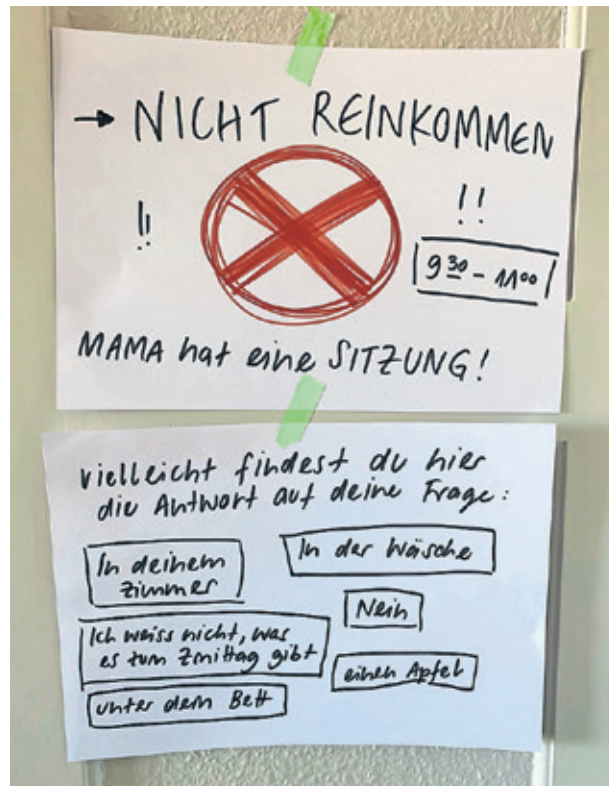 → NICHT REINKOMMEN
!! !!
9³⁰ - 11⁰⁰
MAMA hat eine SITZUNG!
vielleicht findest du hier
die Antwort auf deine Frage:
In deinem
Zimmer
In der Wäsche
Nein
Ich weiss nicht, was
es zum Zmittag gibt
einen Apfel
unter dem Bett